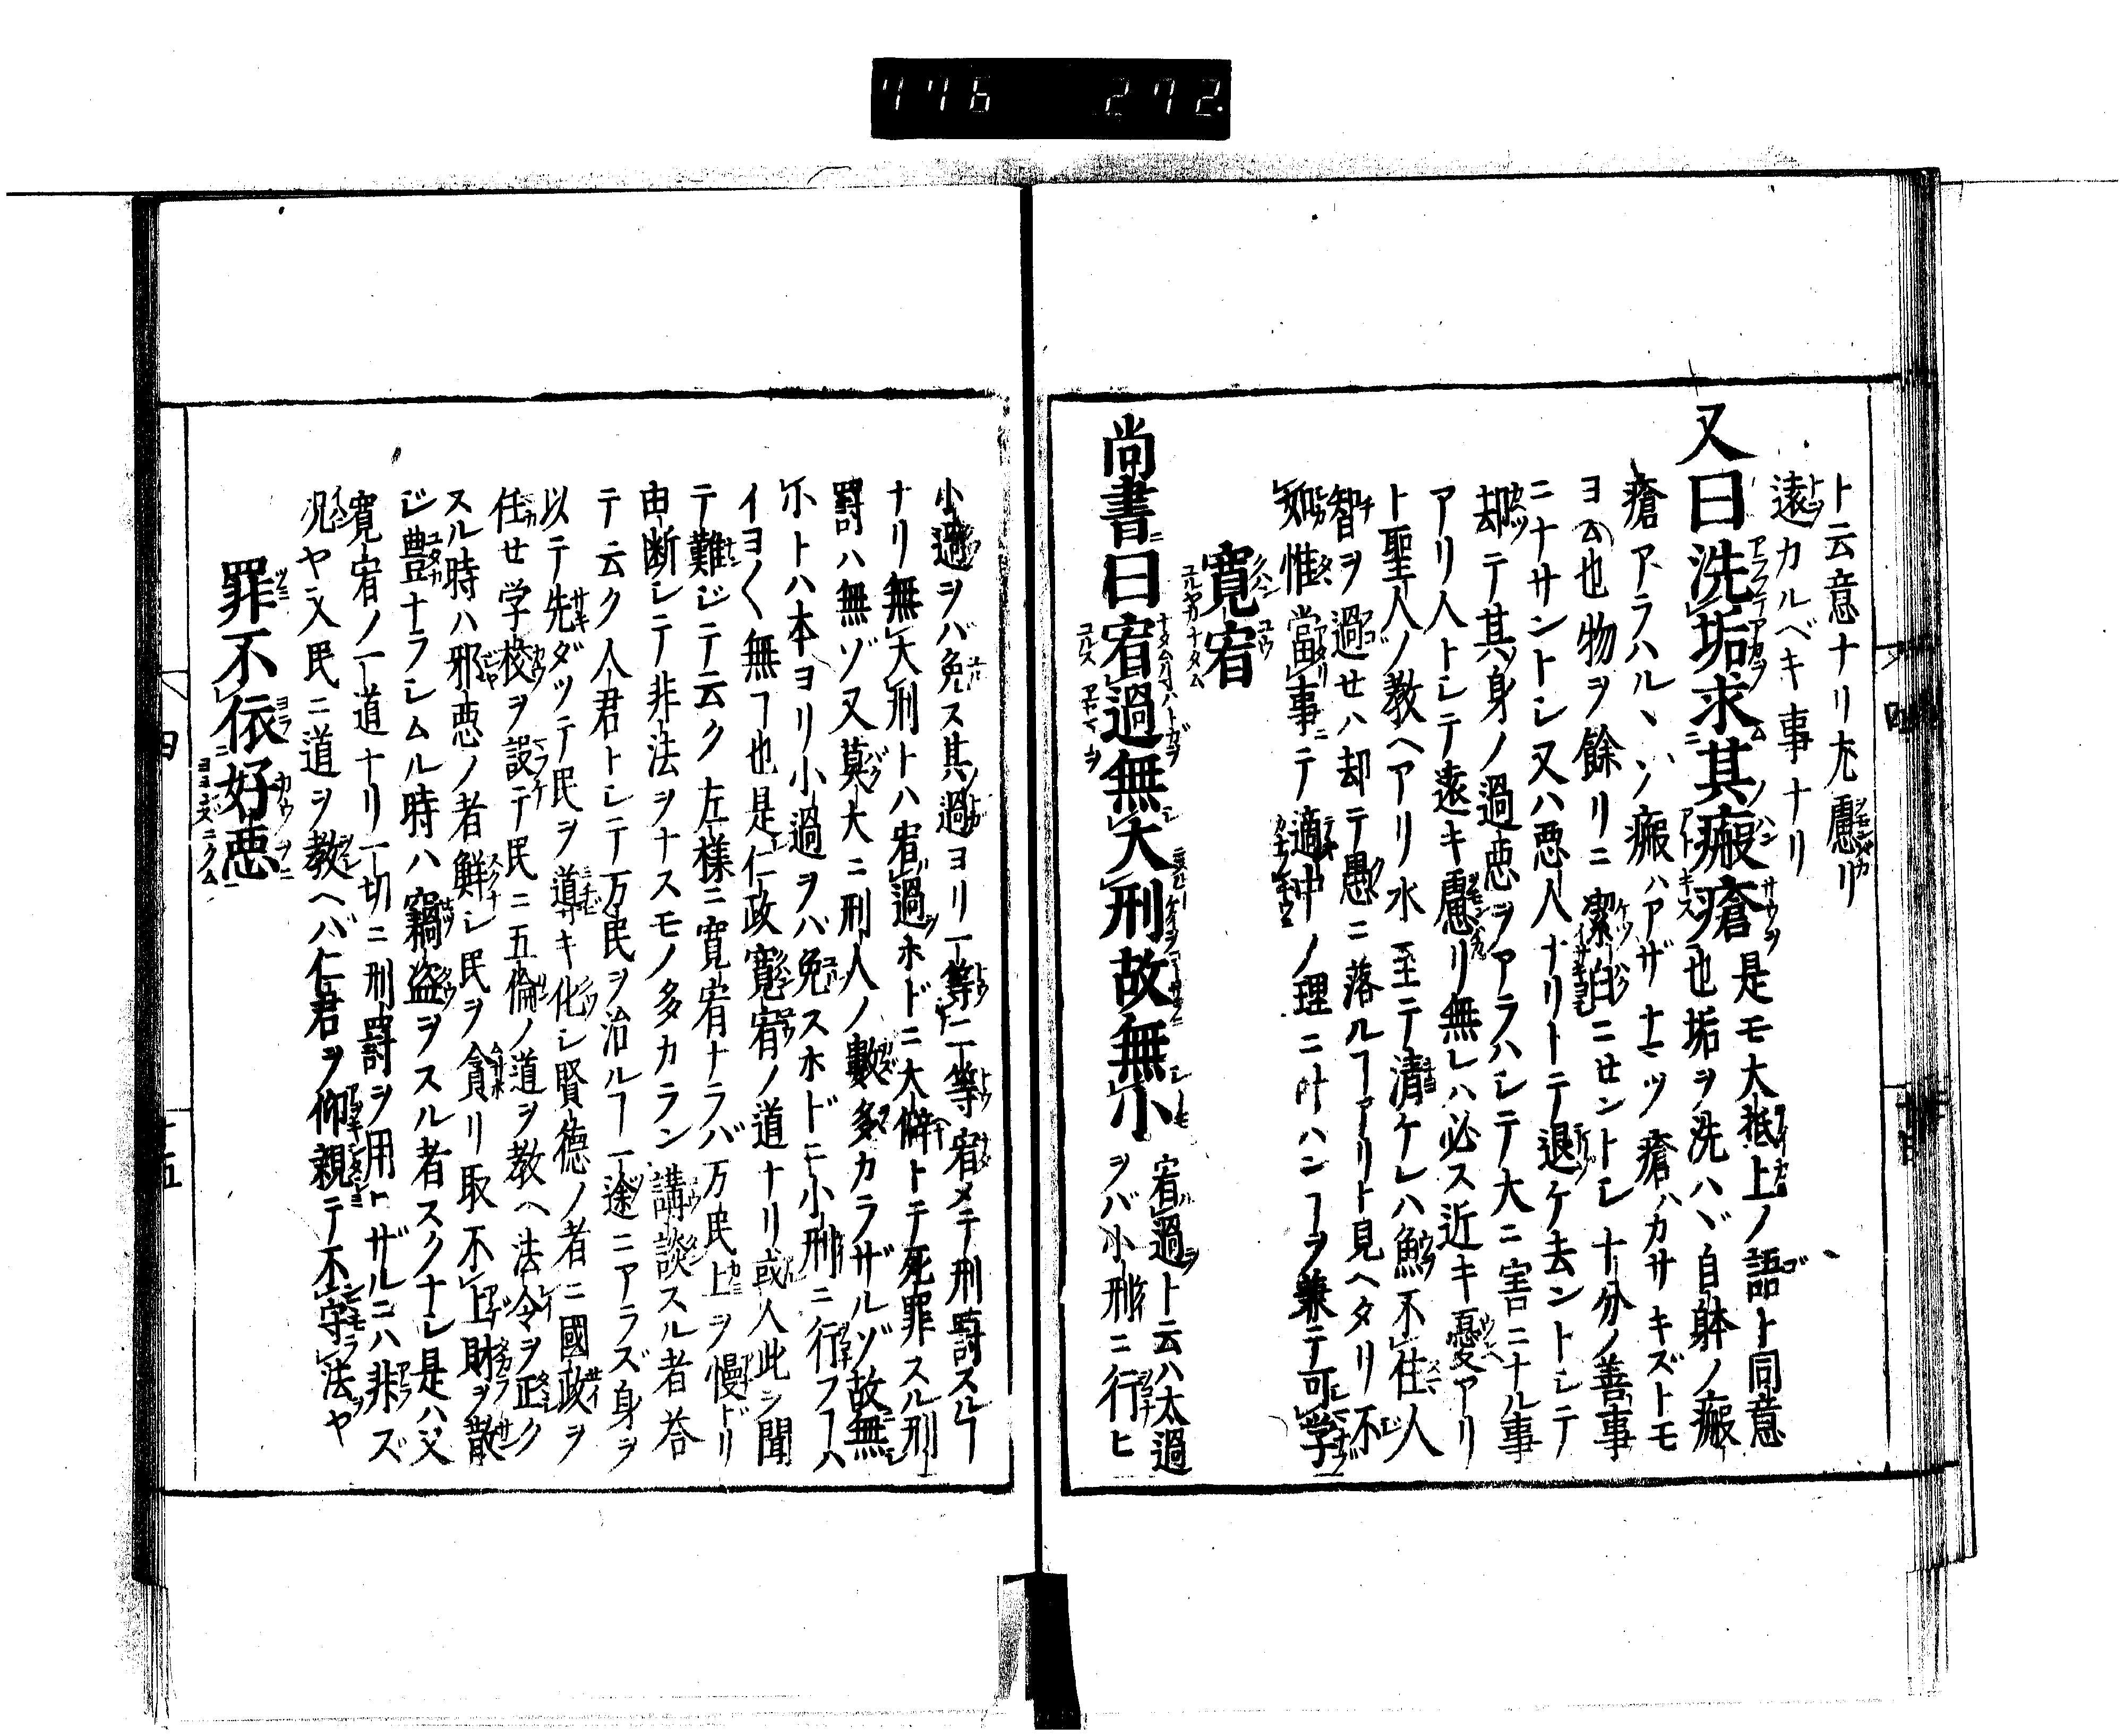 776 272
ト云意ナリ尤慮リ
遠カルベキ事ナリ
又曰洗垢求其瘢瘡 是モ大抵上ノ語ト同意
也垢ヲ洗ハヾ自躰ノ瘢
瘡アラハルヽゾ瘢ハアザナヽツ瘡ハカサキズトモ
ヨム也物ヲ餘リニ潔白ニセントシ十分ノ善事
ニナサントシ又ハ悪人ナリトテ退ケ去ントシテ
却テ其身ノ過悪ヲアラハシテ大ニ害ニナル事
アリ人トシテ遠キ慮リ無レハ必ス近キ憂アリ
ト聖人ノ教ヘアリ水至テ清ケレハ魚不住人
智ヲ過セハ却テ愚ニ落ルヿアリト見ヘタリ不
如惟當事ニテ適中ノ理ニ叶ハンヿヲ兼テ可学
寛宥
尚書曰宥過無大刑故無小 宥過ト云ハ太過
ヲバ小刑ニ行ヒ
小過ヲバ免ス其過ヨリ一等二等宥メテ刑罸スルヿ
ナリ無大刑トハ宥過ホドニ大僻トテ死罪スル刑
罸ハ無ゾ又莫大ニ刑人ノ數多カラザルゾ故無
小トハ本ヨリ小過ヲバ免スホドニ小刑ニ行フヿハ
イヨ〱無ヿ也是仁政寛宥ノ道ナリ或人此ヲ聞
テ難ジテ云ク左様ニ寛宥ナラバ万民上ヲ慢ドリ
由断シテ非法ヲナスモノ多カラン講談スル者荅
テ云ク人君トシテ万民ヲ治ルヿ一途ニアラズ身ヲ
以テ先ダツテ民ヲ導キ化シ賢徳ノ者ニ國政ヲ
任セ学校ヲ設テ民ニ五倫ノ道ヲ教ヘ法令ヲ正ク
スル時ハ邪悪ノ者鮮シ民ヲ貪リ取不上財ヲ散
ジ豊ナラシムル時ハ竊盗ヲスル者スクナシ是ハ父
寛宥ノ一道ナリ一切ニ刑罸ヲ用ヒザルニハ非ズ
况ヤ人民ニ道ヲ教ヘバ仁君ヲ仰親テ不守法ヤ
罪不依好悪